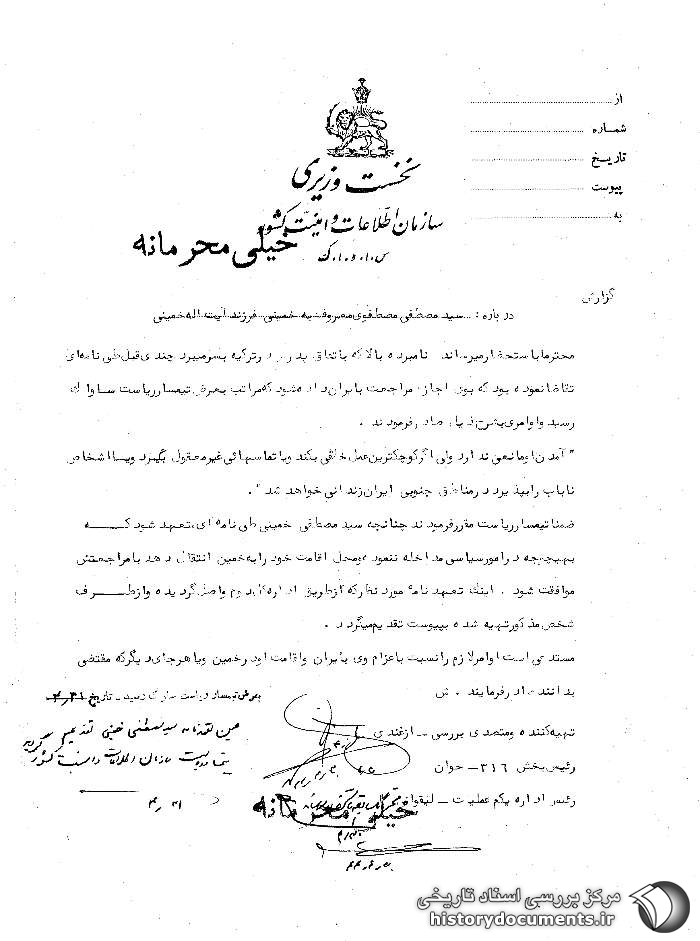 از
شماره
تاریخ
پیوست
به
نخست وزیری
سازمان اطلاعات و امنیت کشور
س.ا.و.ا.ک
خیلی محرمانه
گزارش
درباره : سید مصطفی مصطفوی معروف به خمینی فرزند آیت اله خمینی
محترما باستحضار میرساند نامبرده بالا که باتفاق پدرش در ترکیه بسر میبرد چندی قبل طی نامه‌ای
تقاضا نموده بود که بوی اجازه مراجعت بایران داده شود که مراتب بعرض تیمسار ریاست ساواک
رسید و اوامری بشرح ذیل صادر فرمودند .
" آمدن او مانعی ندارد ولی اگر کوچکترین عمل خلافی بکند و یا تماسهائی غیر معقول بگیرد و یا اشخاص
ناباب را بپذیرد در مناطق جنوبی ایران زندانی خواهد شد " .
ضمنا تیمسار ریاست مقرر فرمودند چنانچه سید مصطفی خمینی طی نامه‌ای، تعهد شود که
بهیچوجه در امور سیاسی مداخله ننمود و محل اقامت خود را به خمین انتقال دهد با مراجعتش
موافقت شود . اینک تعهد نامه مورد نظر که از طریق اداره کل دوم واصل گردیده و از طرف
شخص مذکور تهیه شده بپیوست تقدیم میگردد .
مستدعی است اوامر لازم را نسبت باعزام وی بایران و اقامت او در خمین و یا هر جای دیگر که مقتضی
بدانند صادر فرمایند . ش
بعرض تیمسار ریاست ساواک رسید - تاریخ ۴/۳۱
تهیه کننده و متصدی بررسی - ازغندی
عین تعهدنامه سید مصطفی خمینی تقدیم
ریاست سازمان اطلاعات و امنیت کشور گردید
رئیس بخش ۳۱۶ - جوان
رئیس اداره یکم عملیات -
۴/۳۱
خیلی محرمانه
مرکز بررسی اسناد تاریخی
historydocuments.ir